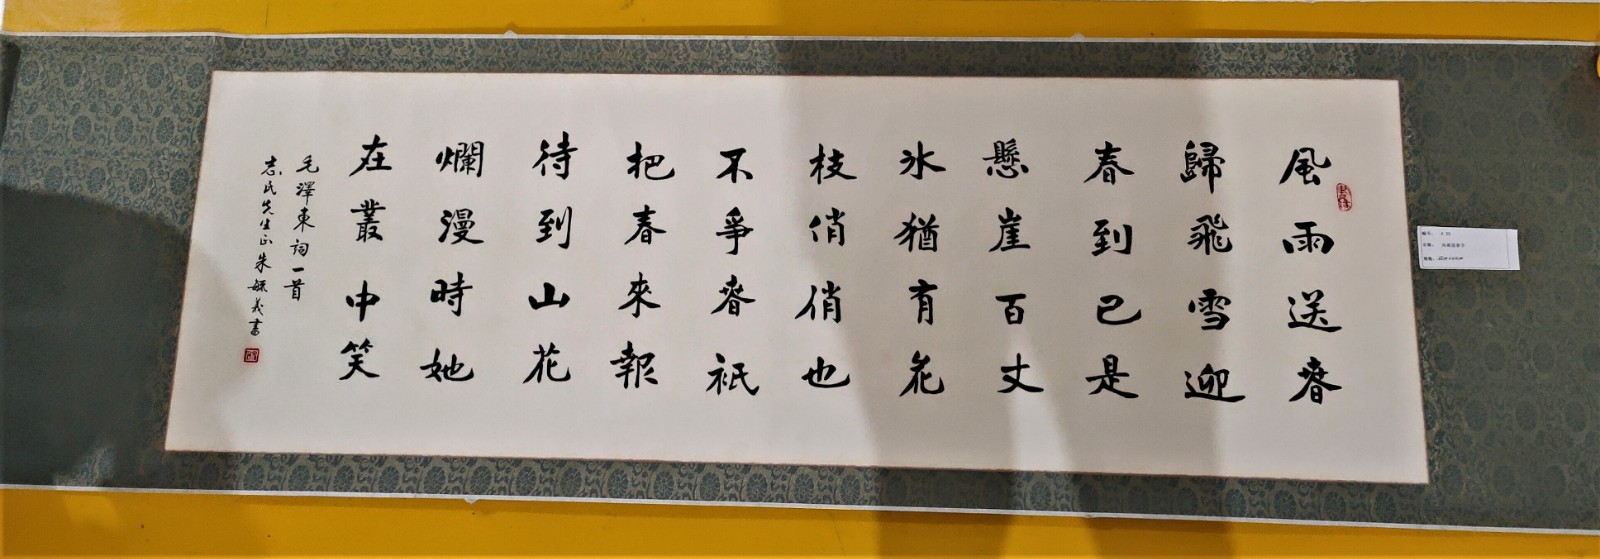 風雨送春
歸飛雪迎
春到已是
懸崖百丈
冰猶有花
枝俏俏也
不爭春祇
把春來報
待到山花
爛漫時她
在叢中笑
毛澤東詞一首
志民先生正朱毓義書